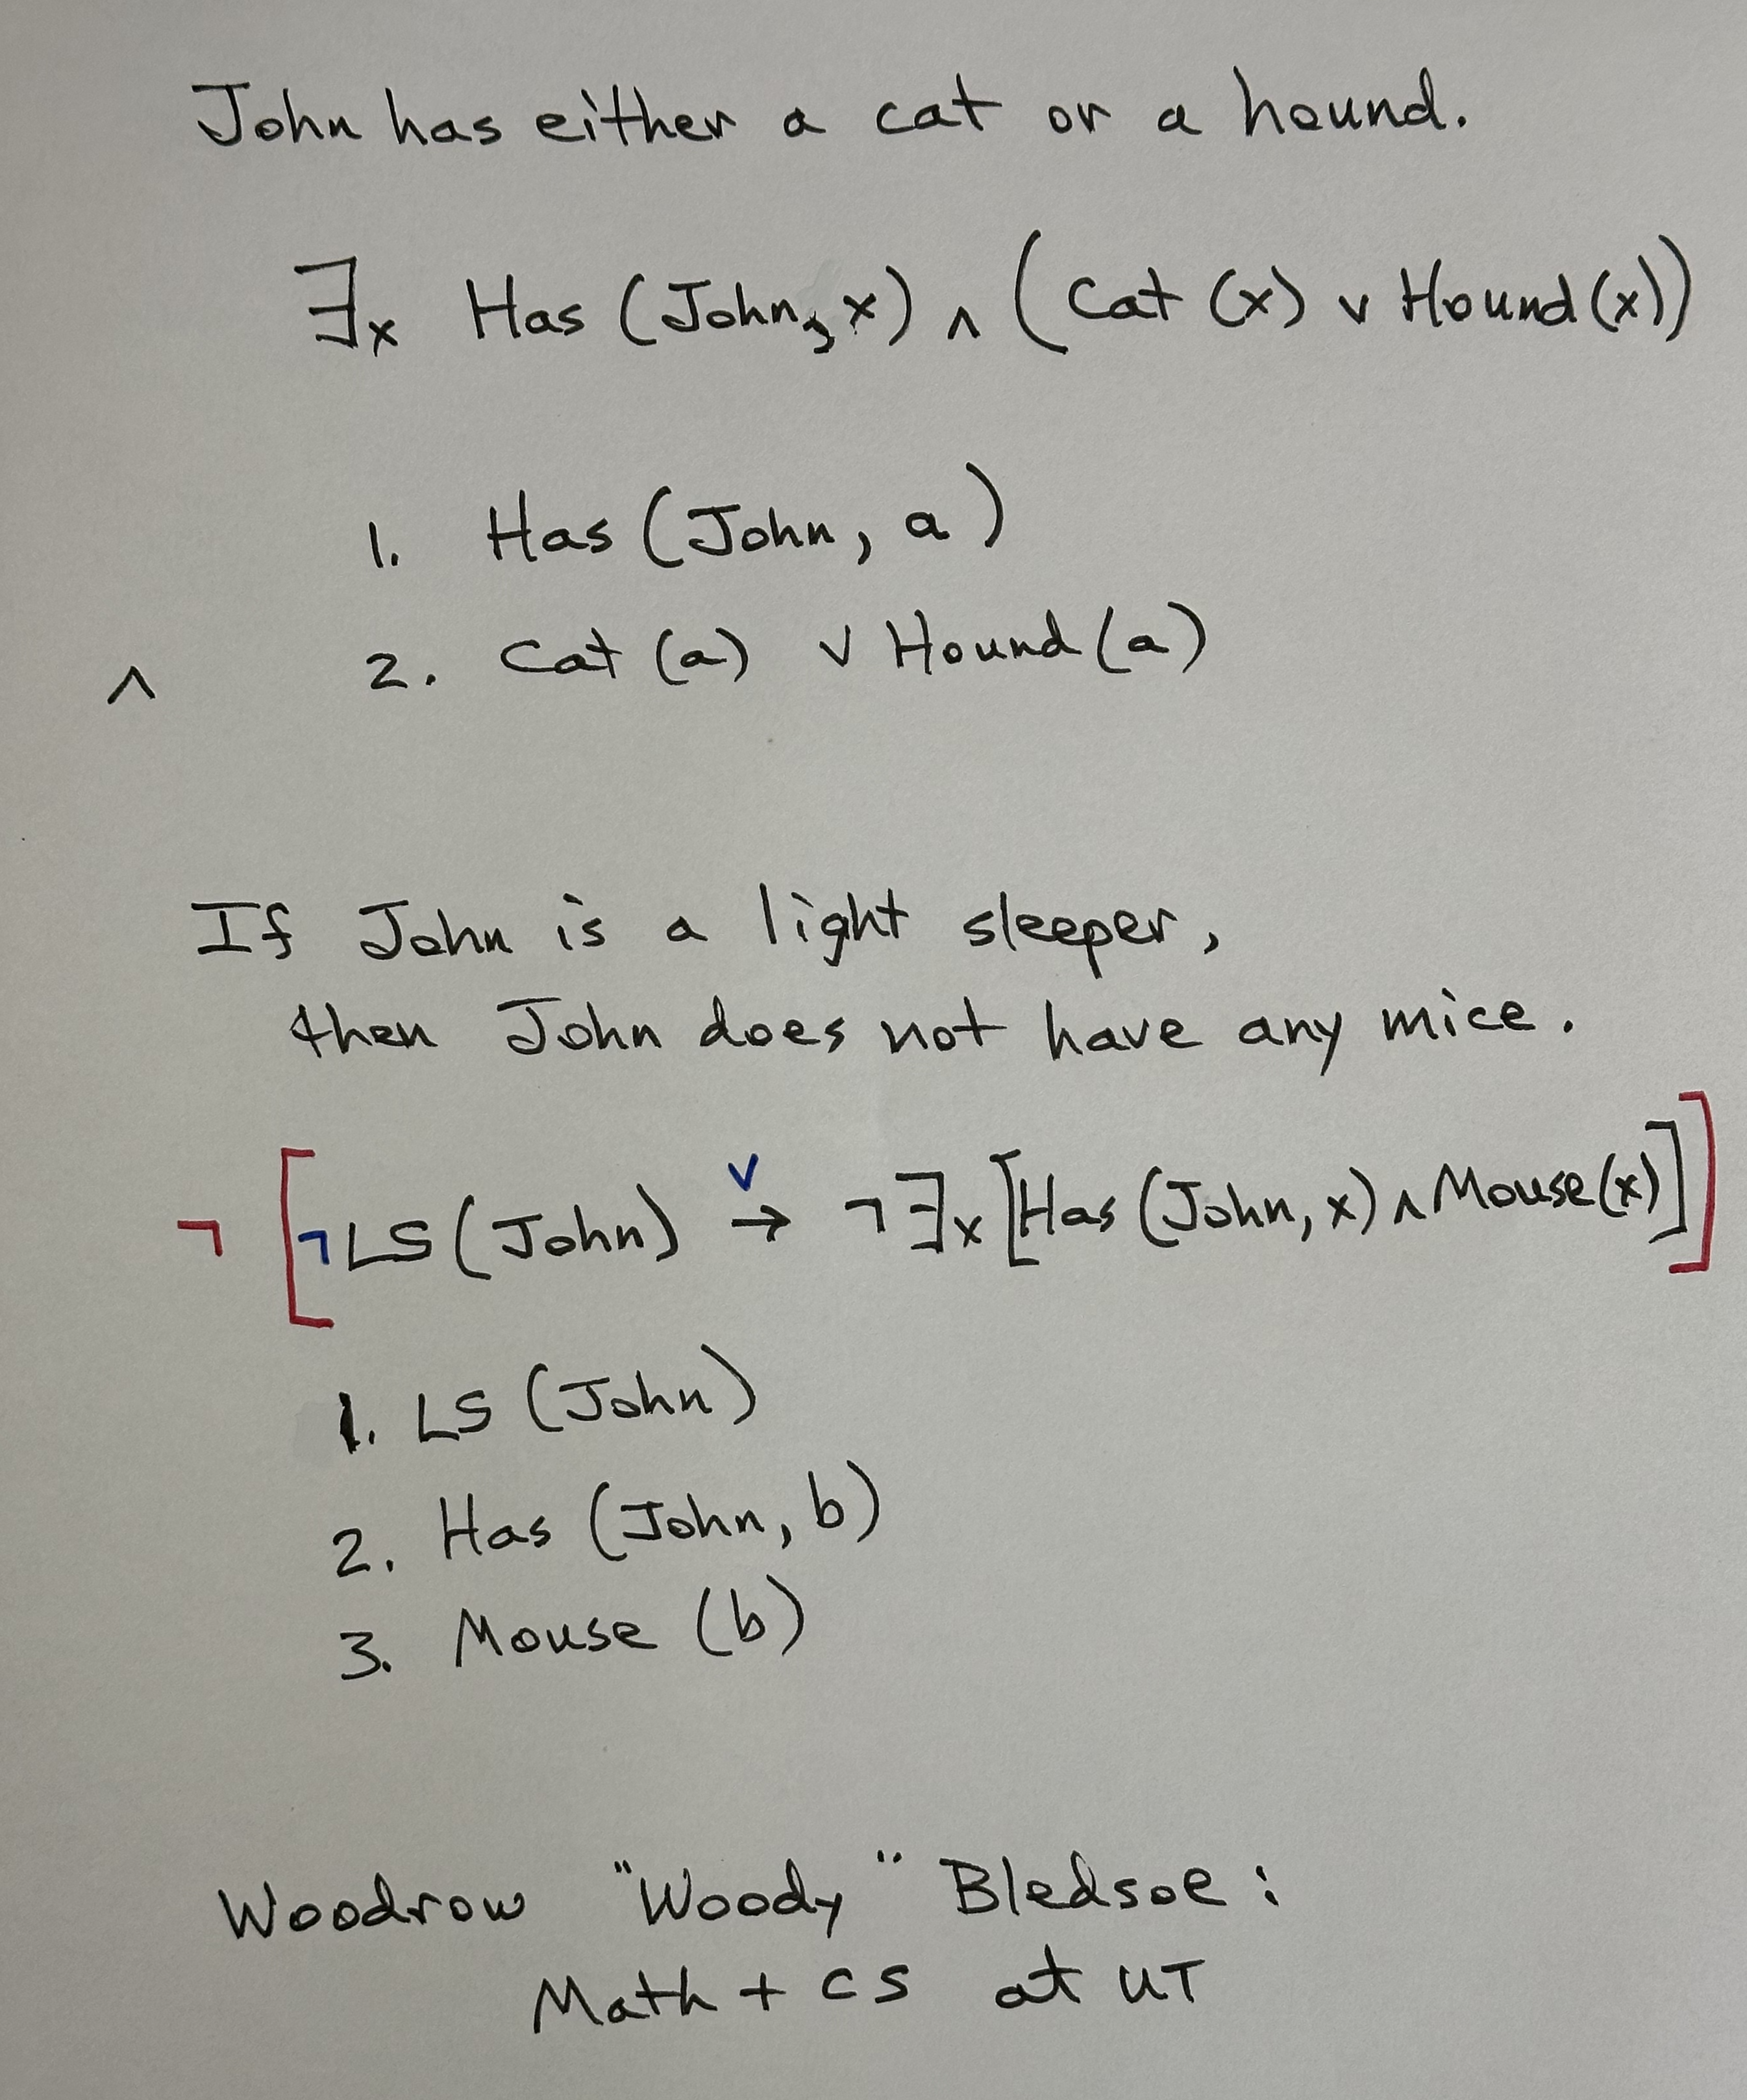 John has either a cat or a hound.
∃x Has (John, x) ∧ (Cat (x) ∨ Hound (x))
1. Has (John, a)
∧ 2. Cat (a) ∨ Hound (a)
If John is a light sleeper,
then John does not have any mice.
∨
¬ [¬LS (John) → ¬∃x [Has (John, x) ∧ Mouse (x)]]
1. LS (John)
2. Has (John, b)
3. Mouse (b)
Woodrow "Woody" Bledsoe:
Math + CS at UT